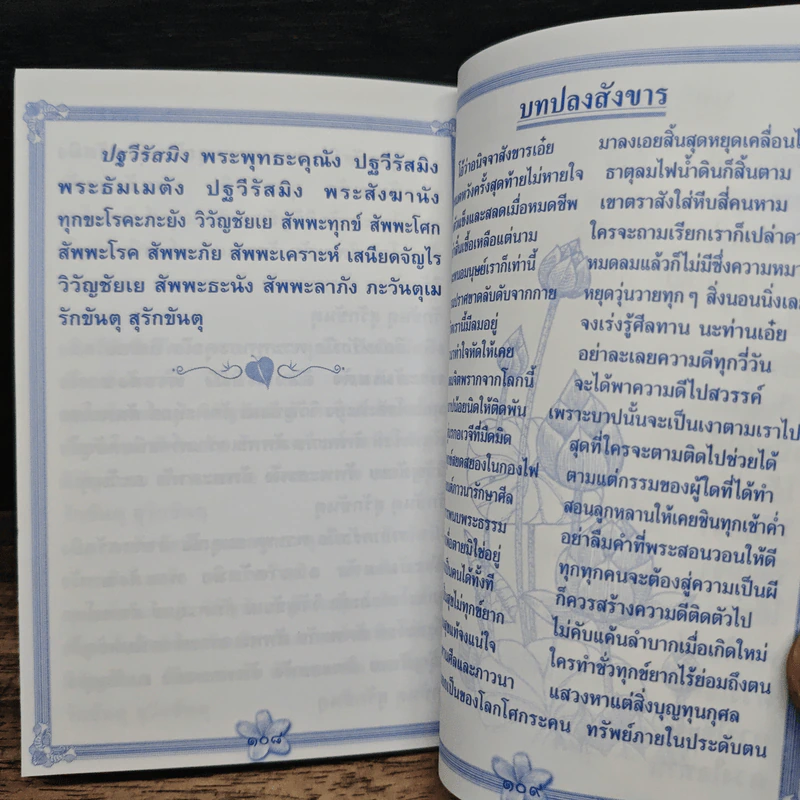 ปฐวีรัสมิง พระพุทธะคุณัง ปฐวีรัสมิง
พระธัมเมตัง ปฐวีรัสมิง พระสังฆานัง
ทุกขะโรคะภะยัง วิวัญชัยเย สัพพะทุกข์ สัพพะโศก
สัพพะโรค สัพพะภัย สัพพะเคราะห์ เสนียดจัญไร
วิวัญชัยเย สัพพะธะนัง สัพพะลาภัง ภะวันตุเม
รักขันตุ สุรักขันตุ
๑๐๘
บทปลงสังขาร
โอ้ว่าอนิจจาสังขารเอ๋ย มาลงเอยสิ้นสุดหยุดเคลื่อนไ
ครั้งสุดท้ายไม่หายใจ ธาตุลมไฟน้ำดินก็สิ้นตาม
แข็งและสลดเมื่อหมดชีพ เขาตราสังใส่หีบสี่คนหาม
ชื่อเหลือแต่นาม ใครจะถามเรียกเราก็เปล่าดา
มนุษย์เราก็เท่านี้ หมดลมแล้วก็ไม่มีซึ่งความหมา
ปราศขาดลับดับจากกาย หยุดวุ่นวายทุก ๆ สิ่งนอนนิ่งเล
เรานี้มีลมอยู่ จงเร่งรู้ศีลทาน นะท่านเอ๋ย
ทำใจหัดให้เคย อย่าละเลยความดีทุกวี่วัน
จิตพรากจากโลกนี้ จะได้พาความดีไปสวรรค์
น้อยนิดให้ติดพัน เพราะบาปนั้นจะเป็นเงาตามเราไป
อเวจีที่มืดมิด สุดที่ใครจะตามติดไปช่วยได้
สยดสยองในกองไฟ ตามแต่กรรมของผู้ใดที่ได้ทำ
ภาวนารักษาศีล สอนลูกหลานให้เคยชินทุกเช้าค่ำ
นบพระธรรม อย่าลืมคำที่พระสอนวอนให้ดี
ตายมิใช่อยู่ ทุกทุกคนจะต้องสู่ความเป็นผี
เป็นคนได้ทั้งที ก็ควรสร้างความดีติดตัวไป
สุขไม่ทุกข์ยาก ไม่คับแค้นลำบากเมื่อเกิดใหม่
แท้จงแน่ใจ ใครทำชั่วทุกข์ยากไร้ย่อมถึงตน
ศีลและภาวนา แสวงหาแต่สิ่งบุญทุนกุศล
เป็นของโลกโศกระคน ทรัพย์ภายในประดับตน
๑๐๙